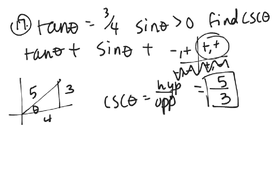 17. tanθ = 3/4 sinθ > 0 find cscθ
tanθ + sinθ + -,+ +,+
5 3
θ
4
cscθ = hyp/opp = 5/3